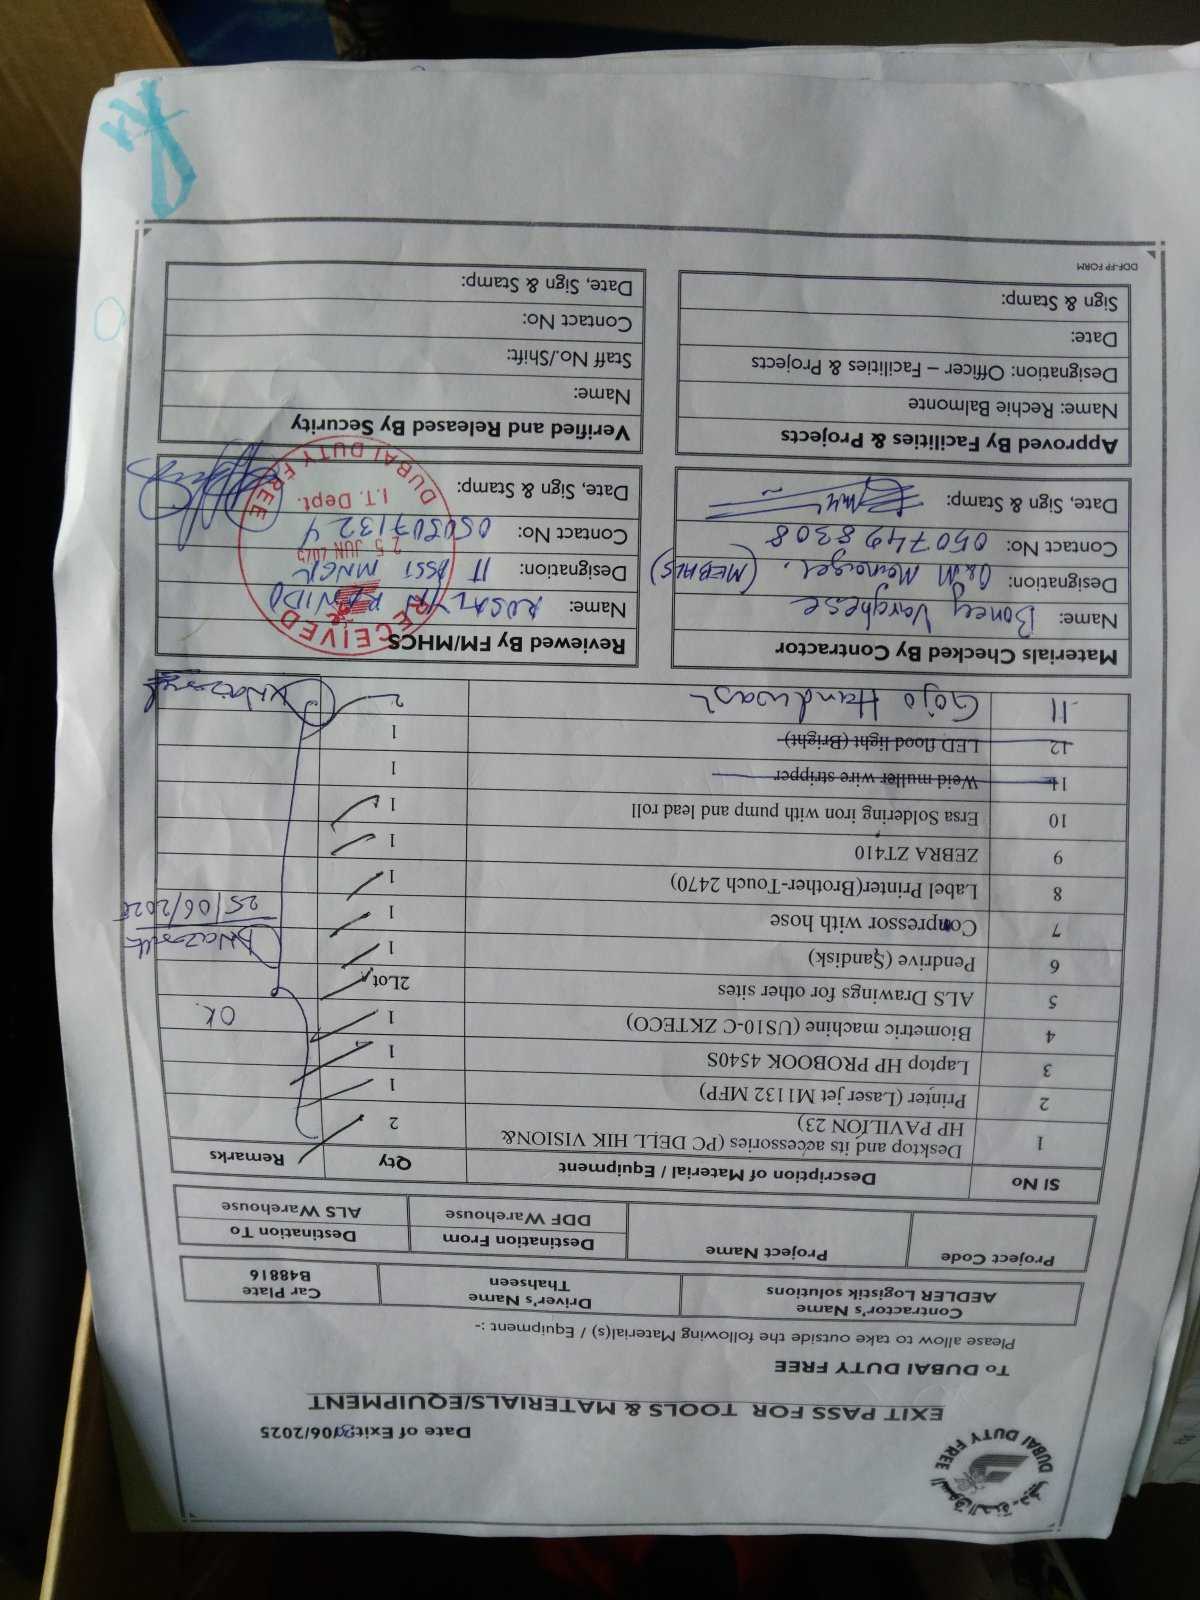 السوق الحرة - دبي
DUBAI DUTY FREE
Date of Exit: /06/2025
EXIT PASS FOR TOOLS & MATERIALS/EQUIPMENT
To DUBAI DUTY FREE
Please allow to take outside the following Material(s) / Equipment :-
Contractor's Name Driver's Name Car Plate
AEDLER Logistik solutions Thahseen B48816
Project Code Project Name Destination From Destination To
DDF Warehouse ALS Warehouse
Sl No Description of Material / Equipment Qty Remarks
1 Desktop and its accessories (PC DELL HIK VISION& 2
HP PAVILION 23)
2 Printer (Laser jet M1132 MFP) 1
3 Laptop HP PROBOOK 4540S 1
4 Biometric machine (US10-C ZKTECO) 1 OK.
5 ALS Drawings for other sites 2Lot
6 Pendrive (Sandisk) 1
7 Compressor with hose 1
25/06/2025
8 Label Printer(Brother-Touch 2470) 1
9 ZEBRA ZT410 1
10 Ersa Soldering iron with pump and lead roll 1
11 Weid muller wire stripper 1
12 LED flood light (Bright) 1
11 Gojo Handwash 2
Materials Checked By Contractor
Name: Boney Varghese
Designation: O&M Manager. (MEBALS)
Contact No: 0507498308
Date, Sign & Stamp:
Reviewed By FM/MHCS
Name: ROSALYN
Designation: IT ASST MNGR
Contact No: 0505071324
Date, Sign & Stamp:
RECEIVED
25 JUN 2025
I.T. Dept.
DUBAI DUTY FREE
Approved By Facilities & Projects
Name: Rechie Balmonte
Designation: Officer – Facilities & Projects
Date:
Sign & Stamp:
Verified and Released By Security
Name:
Staff No./Shift:
Contact No:
Date, Sign & Stamp:
DDF-FP FORM